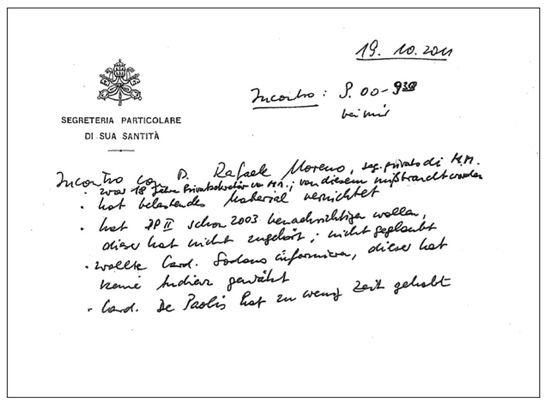 19. 10. 2011
Incontro: 9.00-9.30
bei mir
SEGRETERIA PARTICOLARE
DI SUA SANTITÀ
Incontro con P. Rafael Moreno, seg. privato di M.M.
· war 18 Jahre Privatsekretär von M.M.; von diesem mißbraucht worden
· hat belastendes Material vernichtet
· hat JP II schon 2003 benachrichtigen wollen,
dieser hat nicht zugehört; nicht geglaubt
· wollte Card. Sodano informieren, dieser hat
keine Audienz gewährt
· Card. De Paolis hat zu wenig Zeit gehabt